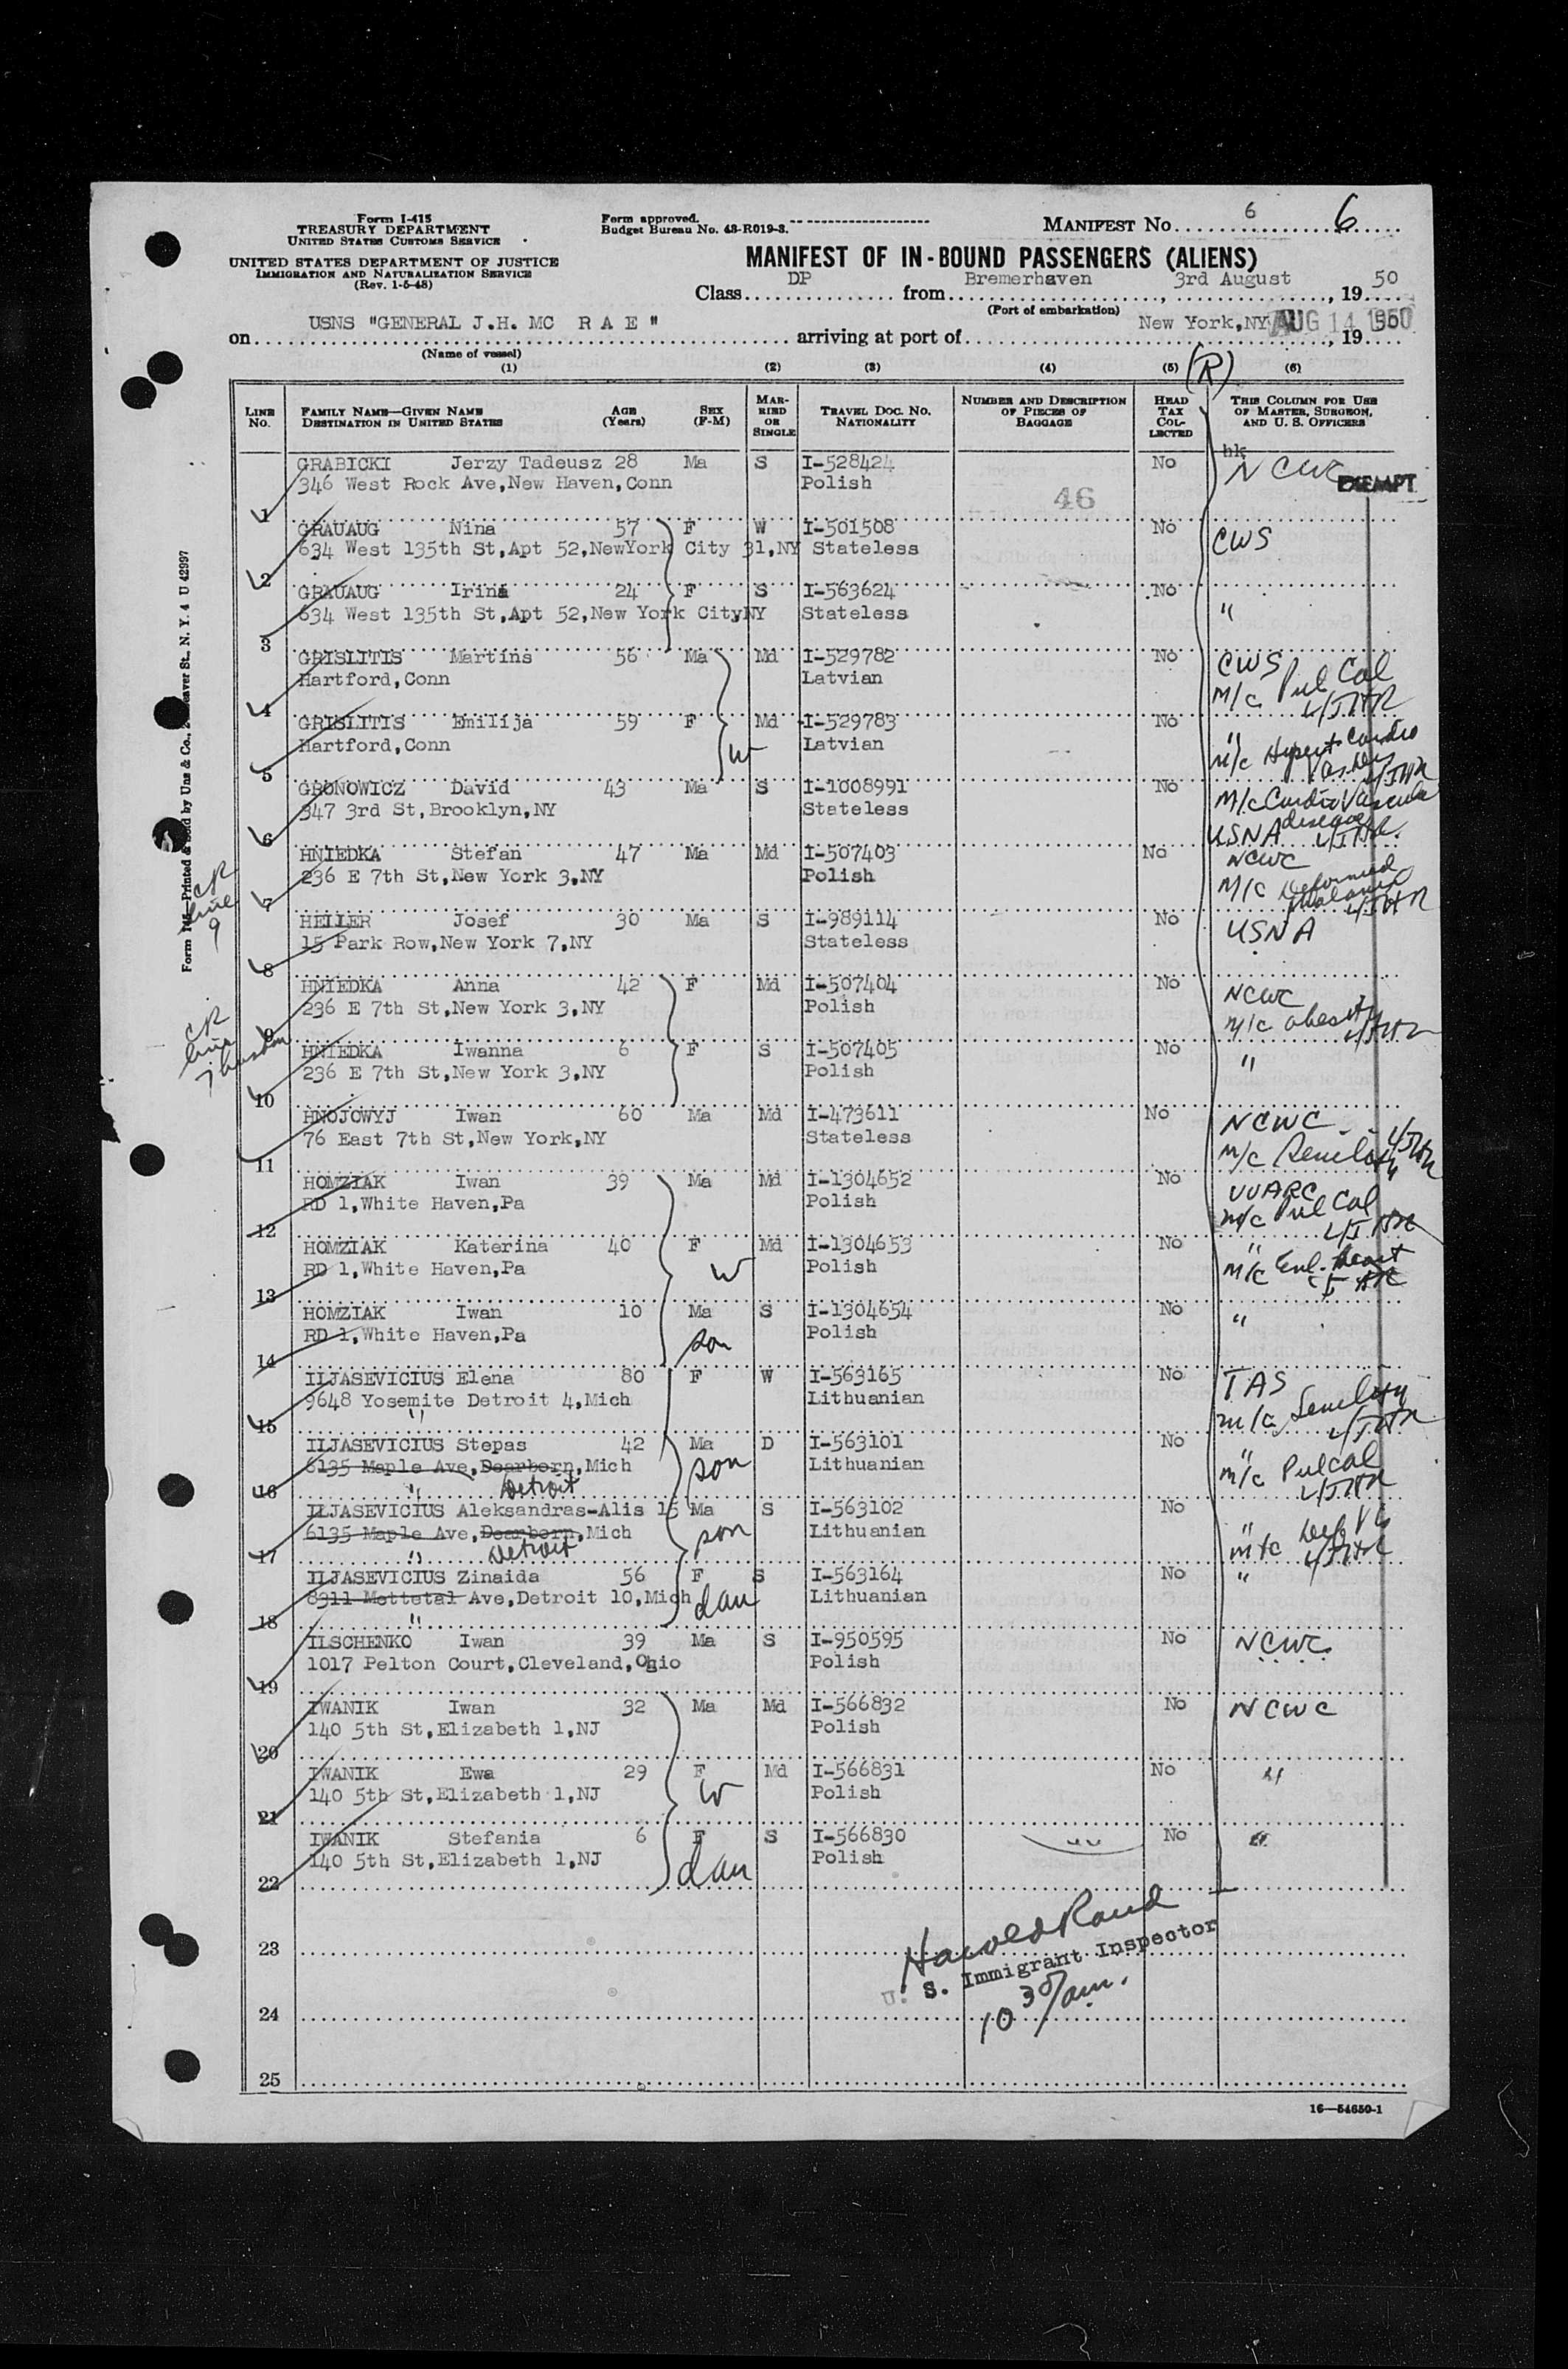 Form I-415
TREASURY DEPARTMENT
UNITED STATES CUSTOMS SERVICE
UNITED STATES DEPARTMENT OF JUSTICE
IMMIGRATION AND NATURALIZATION SERVICE
(Rev. 1-5-48)
Form approved.
Budget Bureau No. 43-R019-3.
MANIFEST No. 6 6
MANIFEST OF IN-BOUND PASSENGERS (ALIENS)
Class DP from Bremerhaven, 3rd August, 1950
(Port of embarkation)
on USNS "GENERAL J.H. MC R A E" arriving at port of New York,NY AUG 14 1950, 19
(Name of vessel)
(1) (2) (3) (4) (5) (R) (6)
LINE No. FAMILY NAME—GIVEN NAME DESTINATION IN UNITED STATES AGE (Years) SEX (F-M) MARRIED OR SINGLE TRAVEL DOC. NO. NATIONALITY NUMBER AND DESCRIPTION OF PIECES OF BAGGAGE HEAD TAX COLLECTED THIS COLUMN FOR USE OF MASTER, SURGEON, AND U. S. OFFICERS
hk
GRABICKI Jerzy Tadeusz 28 Ma S I-528424 No NCWC EXEMPT
346 West Rock Ave,New Haven,Conn Polish 46
1
GRAUAUG Nina 57 F W I-501508 No CWS
634 West 135th St,Apt 52,NewYork City 31,NY Stateless
2
GRAUAUG Irina 24 F S I-563624 No "
634 West 135th St,Apt 52,New York City,NY Stateless
3
GRISLITIS Martins 56 Ma Md I-529782 No CWS
Hartford,Conn Latvian M/c Pul Cal
4
GRISLITIS Emilija 59 F Md I-529783 No "
Hartford,Conn W Latvian M/c Hypert Cardio
5
GRONOWICZ David 43 Ma S I-1008991 No M/c Cardio Vascular
347 3rd St,Brooklyn,NY Stateless disease
6 USNA
HNIEDKA Stefan 47 Ma Md I-507403 No NCWC
236 E 7th St,New York 3,NY Polish M/c Deformed
CR line 9
7
HELLER Josef 30 Ma S I-989114 No USNA
15 Park Row,New York 7,NY Stateless
8
HNIEDKA Anna 42 F Md I-507404 No NCWC
236 E 7th St,New York 3,NY Polish M/c obesity
CR line 7 husban
9
HNIEDKA Iwanna 6 F S I-507405 No "
236 E 7th St,New York 3,NY Polish
10
HNOJOWYJ Iwan 60 Ma Md I-473611 No NCWC
76 East 7th St,New York,NY Stateless M/c Senility
11
HOMZIAK Iwan 39 Ma Md I-1304652 No UUARC
RD 1,White Haven,Pa Polish M/c Pul Cal
12
HOMZIAK Katerina 40 F Md I-1304653 No "
RD 1,White Haven,Pa W Polish M/c Enl. Heart
13
HOMZIAK Iwan 10 Ma S I-1304654 No "
RD 1,White Haven,Pa son Polish
14
ILJASEVICIUS Elena 80 F W I-563165 No TAS
9648 Yosemite Detroit 4,Mich Lithuanian M/c Senility
15 "
ILJASEVICIUS Stepas 42 Ma D I-563101 No "
6135 Maple Ave,Dearborn,Mich son Lithuanian M/c Pul Cal
16 " Detroit
ILJASEVICIUS Aleksandras-Alis 15 Ma S I-563102 No "
6135 Maple Ave,Dearborn,Mich son Lithuanian M/c
17 " Detroit
ILJASEVICIUS Zinaida 56 F S I-563164 No "
8311 Mettetal Ave,Detroit 10,Mich dau Lithuanian
18 "
ILSCHENKO Iwan 39 Ma S I-950595 No NCWC
1017 Pelton Court,Cleveland,Ogio Polish
19
IWANIK Iwan 32 Ma Md I-566832 No NCWC
140 5th St,Elizabeth 1,NJ Polish
20
IWANIK Ewa 29 F Md I-566831 No "
140 5th St,Elizabeth 1,NJ W Polish
21
IWANIK Stefania 6 F S I-566830 No "
140 5th St,Elizabeth 1,NJ dau Polish
22
Harold Rand
23
U. S. Immigrant Inspector
10 30/am.
24
25
16—54650-1